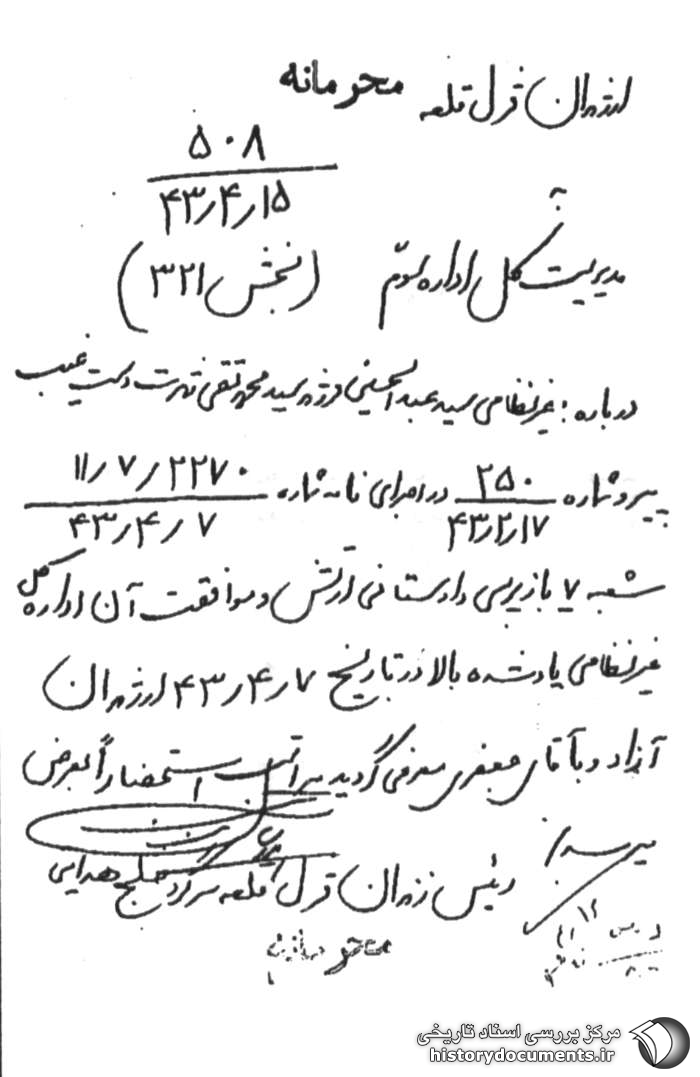 از زندان قزل قلعه محرمانه
۵۰۸
۴۳٫۴٫۱۵
مدیریت کل اداره سوم (بخش ۳۲۱)
درباره: غیرنظامی سید عبدالحسین فرزند سید محمدتقی شهرت دست غیب
پیرو شماره ۲۵۰ / ۴۳٫۲٫۱۷ در اجرای نامه شماره ۱۱٫۷٫۲۲۷۰ / ۴۳٫۴٫۷
شعبه ۷ بازپرسی دادستانی ارتش و موافقت آن اداره کل
غیرنظامی یاد شده بالا در تاریخ ۴۳٫۴٫۷ از زندان
آزاد و بآقای جعفری معرفی گردید مراتب استحضاراً بعرض
میرسد.
رئیس زندان قزل قلعه سرگرد هدایی
محرمانه
مرکز بررسی اسناد تاریخی
historydocuments.ir